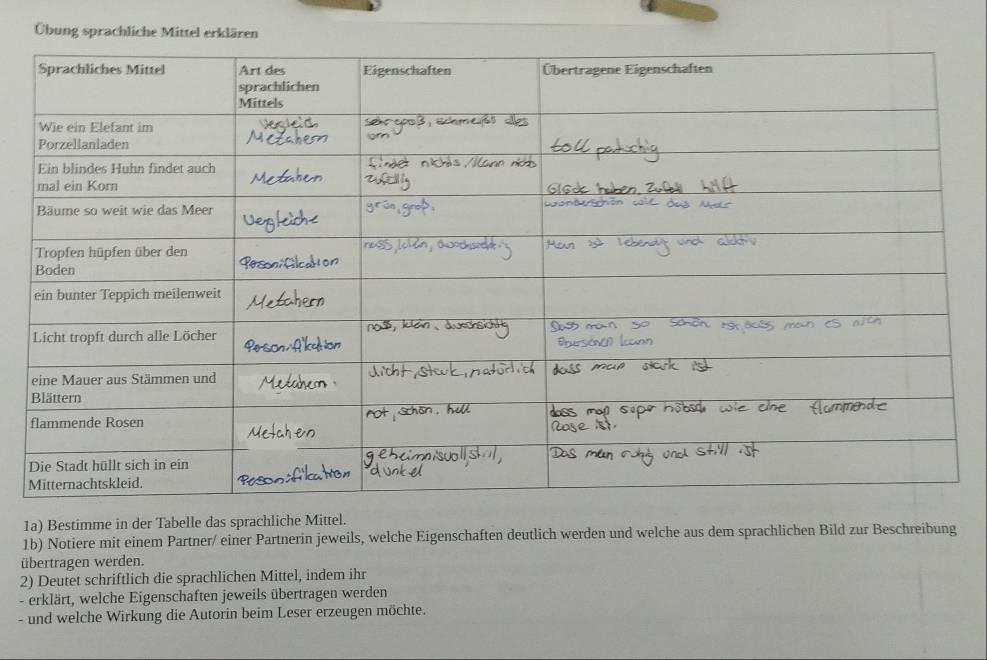 Übung sprachliche Mittel erklären
Sprachliches Mittel
Art des
sprachlichen
Mittels
Eigenschaften
Übertragene Eigenschaften
Wie ein Elefant im
Porzellanladen
Vergleich
Metahern
sehr groß, schmeißt alles
um
toll patschig
Ein blindes Huhn findet auch
mal ein Korn
Metahern
findet nichts / kann nichts
zufällig
Glück haben, Zufall hilft
Bäume so weit wie das Meer
Vergleiche
grün, groß.
wonderschön wie das Meer
Tropfen hüpfen über den
Boden
Personifikation
nass, klein,
Man ist lebendig und
ein bunter Teppich meilenweit
Metahern
Licht tropft durch alle Löcher
Personifikation
nass, klein, durchsichtig
Dass man so schön ist, dass man es nich
kann
eine Mauer aus Stämmen und
Blättern
Metahern.
dicht, stark, natürlich
dass man stark ist
flammende Rosen
Metahern
rot, schön, hell
dass man super hübsch wie eine flammende
Rose ist.
Die Stadt hüllt sich in ein
Mitternachtskleid.
Personifikation
geheimnisvoll, still,
dunkel
Das man ruhig und still ist
1a) Bestimme in der Tabelle das sprachliche Mittel.
1b) Notiere mit einem Partner/ einer Partnerin jeweils, welche Eigenschaften deutlich werden und welche aus dem sprachlichen Bild zur Beschreibung
übertragen werden.
2) Deutet schriftlich die sprachlichen Mittel, indem ihr
- erklärt, welche Eigenschaften jeweils übertragen werden
- und welche Wirkung die Autorin beim Leser erzeugen möchte.